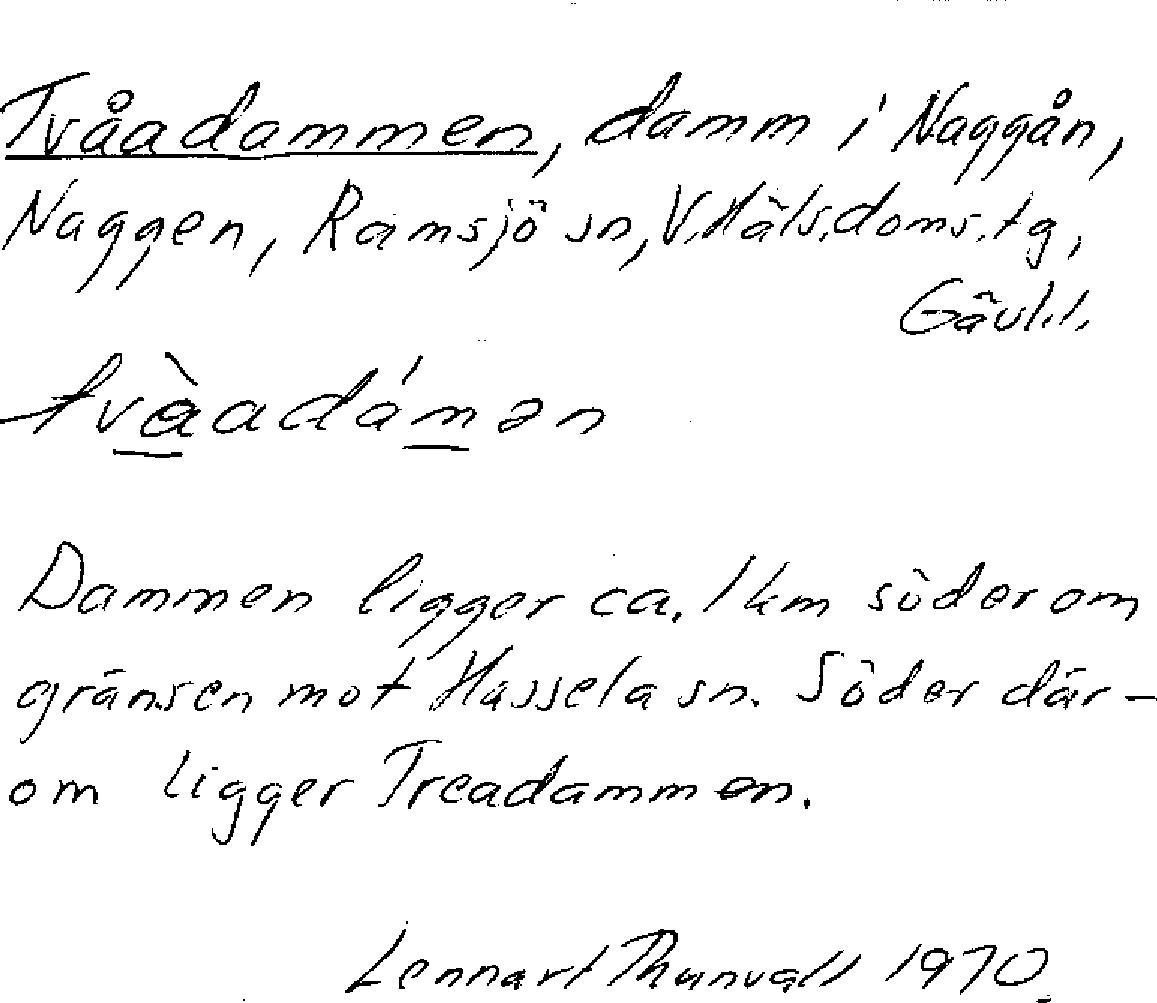 Tvåadammen, damm i Naggån,
Naggen, Ramsjö sn, V.Häls.doms.tg,
Gävl.l.
tvàadámən
Dammen ligger ca. 1 km söder om
gränsen mot Hassela sn. Söder där-
om ligger Treadammen.
Lennart Thunvall 1970.